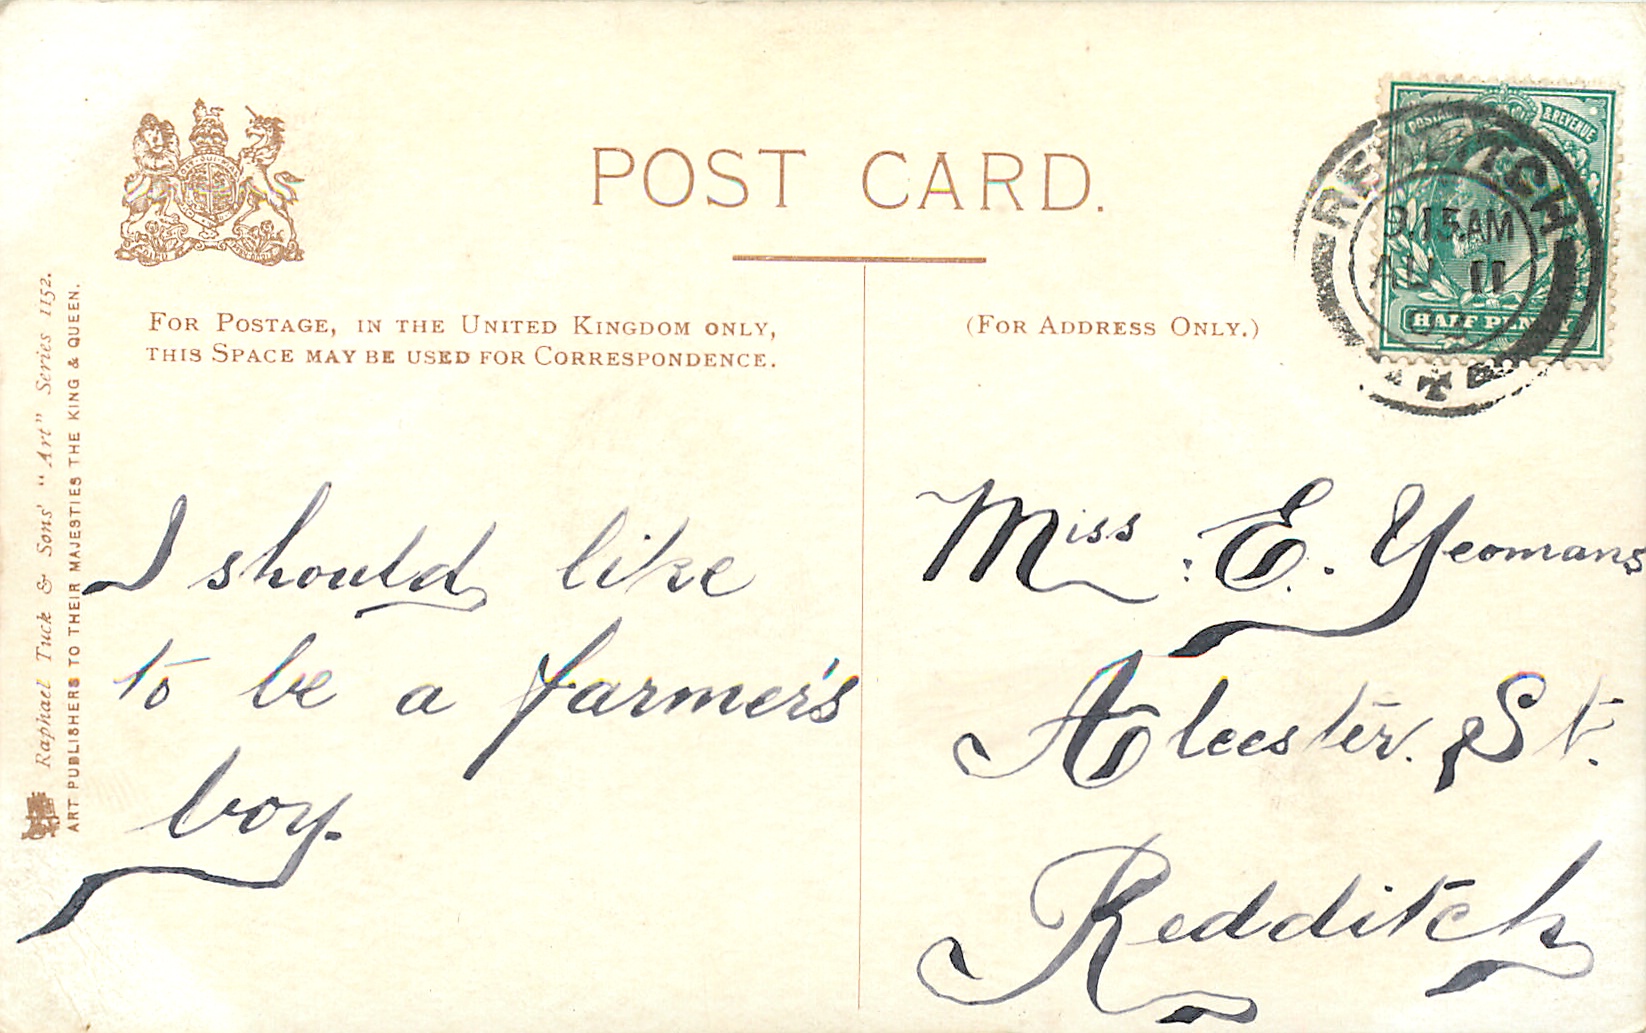 POST CARD.
FOR POSTAGE, IN THE UNITED KINGDOM ONLY,
THIS SPACE MAY BE USED FOR CORRESPONDENCE.
(FOR ADDRESS ONLY.)
Raphael Tuck & Sons' "Art" Series 1152.
ART PUBLISHERS TO THEIR MAJESTIES THE KING & QUEEN.
POSTAGE & REVENUE
HALF PENNY
REDDITCH
9.15 AM
AU 11
I should like
to be a farmer's
boy.
Miss E. Yeomans
Alcester St.
Redditch